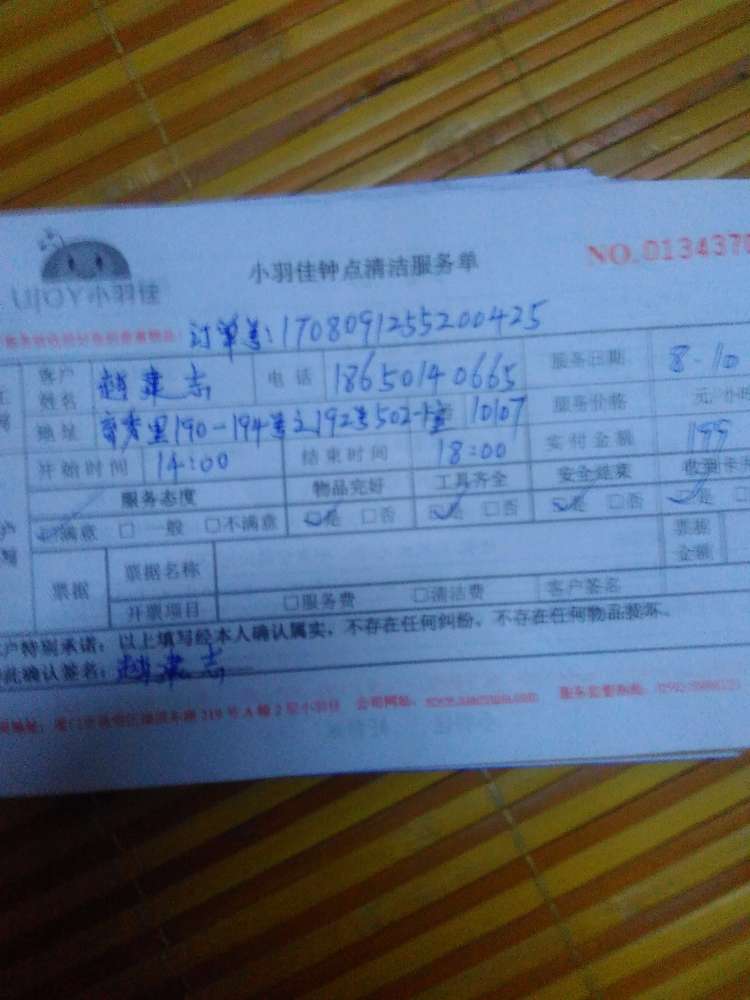 UJOY小羽佳
小羽佳钟点清洁服务单
NO.0134370
订单号:1708091255200425
客户姓名 赵建志 电话 18650140665 服务日期 8-10
地址 里190-194号之192号502-1室 10107 服务价格 元/小时
开始时间 14:00 结束时间 18:00 实付金额 199
服务态度 物品完好 工具齐全 安全结束
满意 □一般 □不满意 是 □否 是 □否 是 □否 是
票据 票据名称 票据金额
开票项目 □服务费 □清洁费 客户签名
户特别承诺:以上填写经本人确认属实,不存在任何纠纷,不存在任何物品损坏。
此确认签名:赵建志
219号A幢2层小羽佳 公司网站: